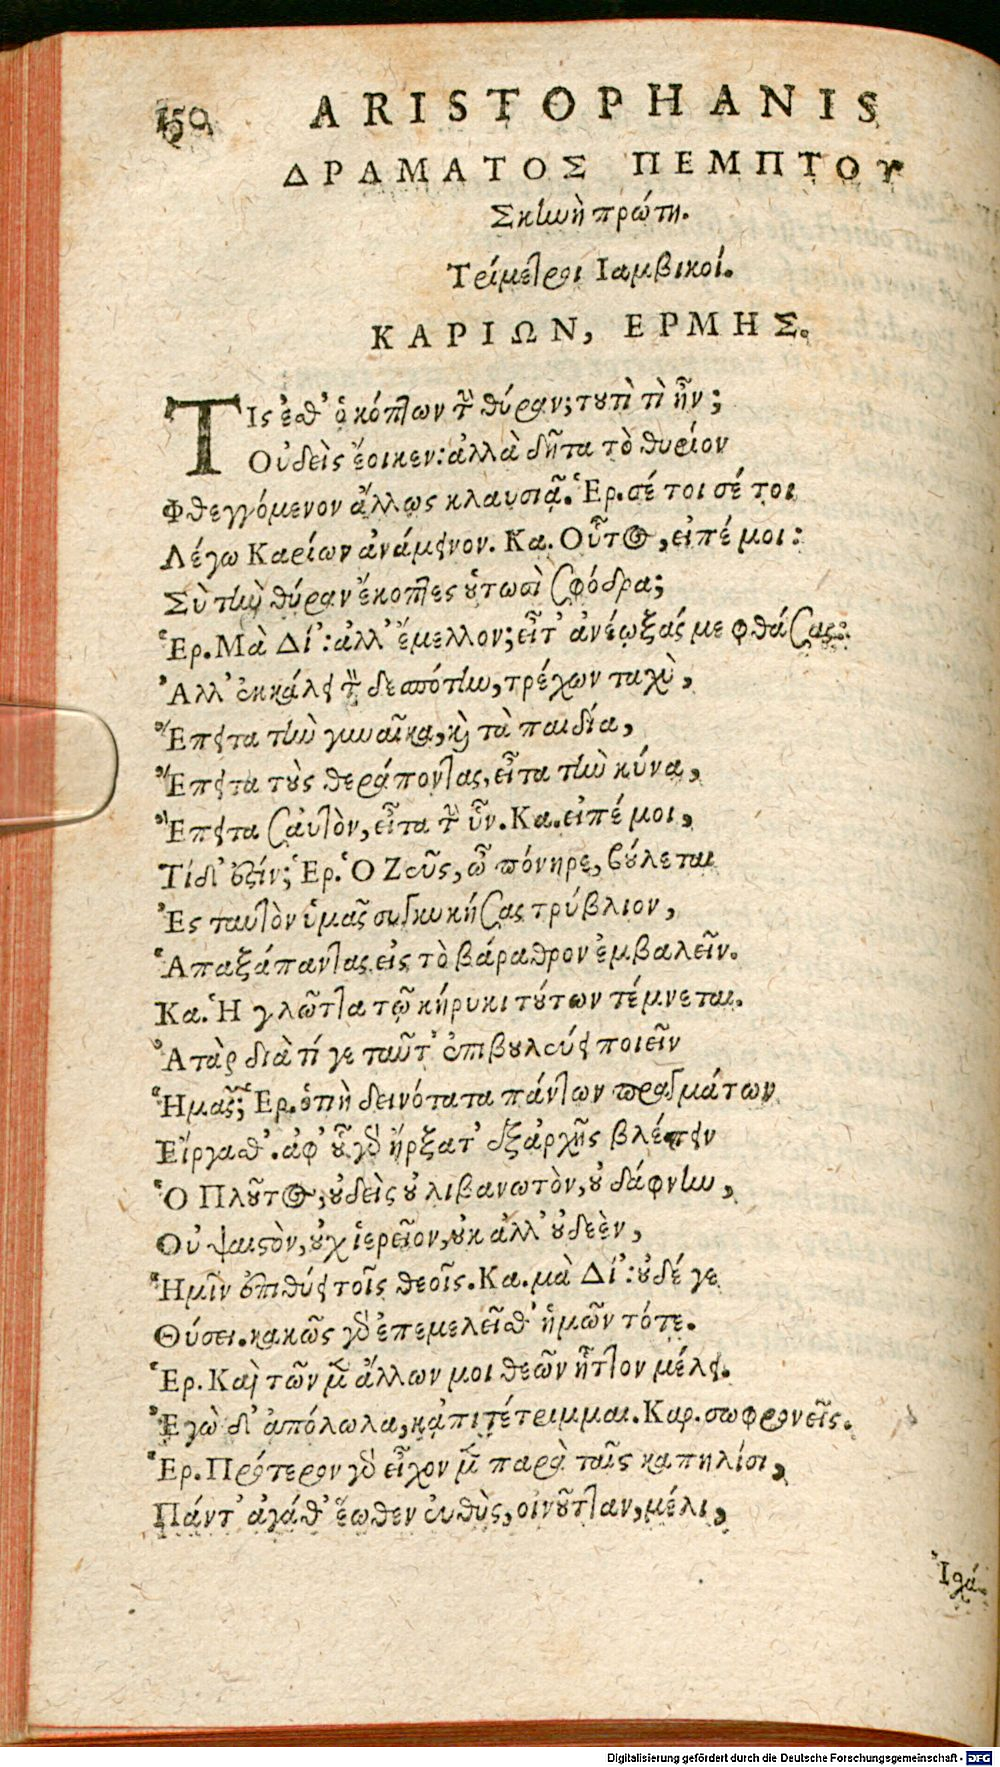 150 ARISTOPHANIS
ΔΡΑΜΑΤΟΣ ΠΕΜΠΤΟΥ
Σκηνὴ πρώτη.
Τρίμετροι Ιαμβικοί.
ΚΑΡΙΩΝ, ΕΡΜΗΣ.
ΤΙς ἐσθ' ὁ κόπτων τὴν θύραν; τουτὶ τὶ ἦν;
Οὐδεὶς ἔοικεν: ἀλλὰ δῆτα τὸ θυρίον
Φθεγγόμενον ἄλλως κλαυσιᾷ. Ἑρ. σέ τοι σέ τοι
Λέγω Καρίων ἀνάμεινον. Κα. Οὗτος, εἰπέ μοι:
Σὺ τὴν θύραν ἔκοπτες οὑτωσὶ σφόδρα;
Ἑρ. Μὰ Δί': ἀλλ' ἔμελλον; εἶτ' ἀνέῳξάς με φθάσας.
Ἀλλ' ἐκκάλει τὸν δεσπότην, τρέχων ταχὺ,
Ἔπειτα τὴν γυναῖκα, καὶ τὰ παιδία,
Ἔπειτα τοὺς θεράποντας, εἶτα τὴν κύνα,
Ἔπειτα σαὐτὸν, εἶτα τὴν ὗν. Κα. εἰπέ μοι,
Τί δ' ἐστίν; Ἑρ. Ὁ Ζεῦς, ὦ πόνηρε, βούλεται
Ἐς ταυτὸν ὑμᾶς συγκυκήσας τρύβλιον,
Ἁπαξάπαντας εἰς τὸ βάραθρον ἐμβαλεῖν.
Κα. Ἡ γλῶττα τῷ κήρυκι τούτων τέμνεται.
Ἀτὰρ διὰ τί γε ταῦτ' ἐπιβουλεύει ποιεῖν
Ἡμᾶς; Ἑρ. ὁπὴ δεινότατα πάντων πραγμάτων
Εἴργασθ'. ἀφ' οὗ γὰρ ἤρξατ' ἐξ ἀρχῆς βλέπειν
Ὁ Πλοῦτος; οὐδεὶς οὐ λιβανωτὸν, οὐ δάφνην,
Οὐ ψαιστὸν, οὐχ ἱερεῖον, οὐκ ἀλλ' οὐδεὲν,
Ἡμῖν ἐπιθύει τοῖς θεοῖς. Κα. μὰ Δί': οὐδέ γε
Θύσει. κακῶς γὰρ ἐπεμελεῖσθ' ἡμῶν τότε.
Ἑρ. Καὶ τῶν μὲν ἄλλων μοι θεῶν ἧττον μέλει.
Ἐγὼ δ' ἀπόλωλα, κᾀπιτέτριμμαι. Καρ. σωφρονεῖς.
Ἑρ. Πρότερον γὰρ εἶχον μὲν παρὰ ταῖς καπηλίσι,
Πάντ' ἀγάθ' ἕωθεν εὐθὺς, οἰνοῦτταν, μέλι,
Ἰσχά-
Digitalisierung gefördert durch die Deutsche Forschungsgemeinschaft - DFG